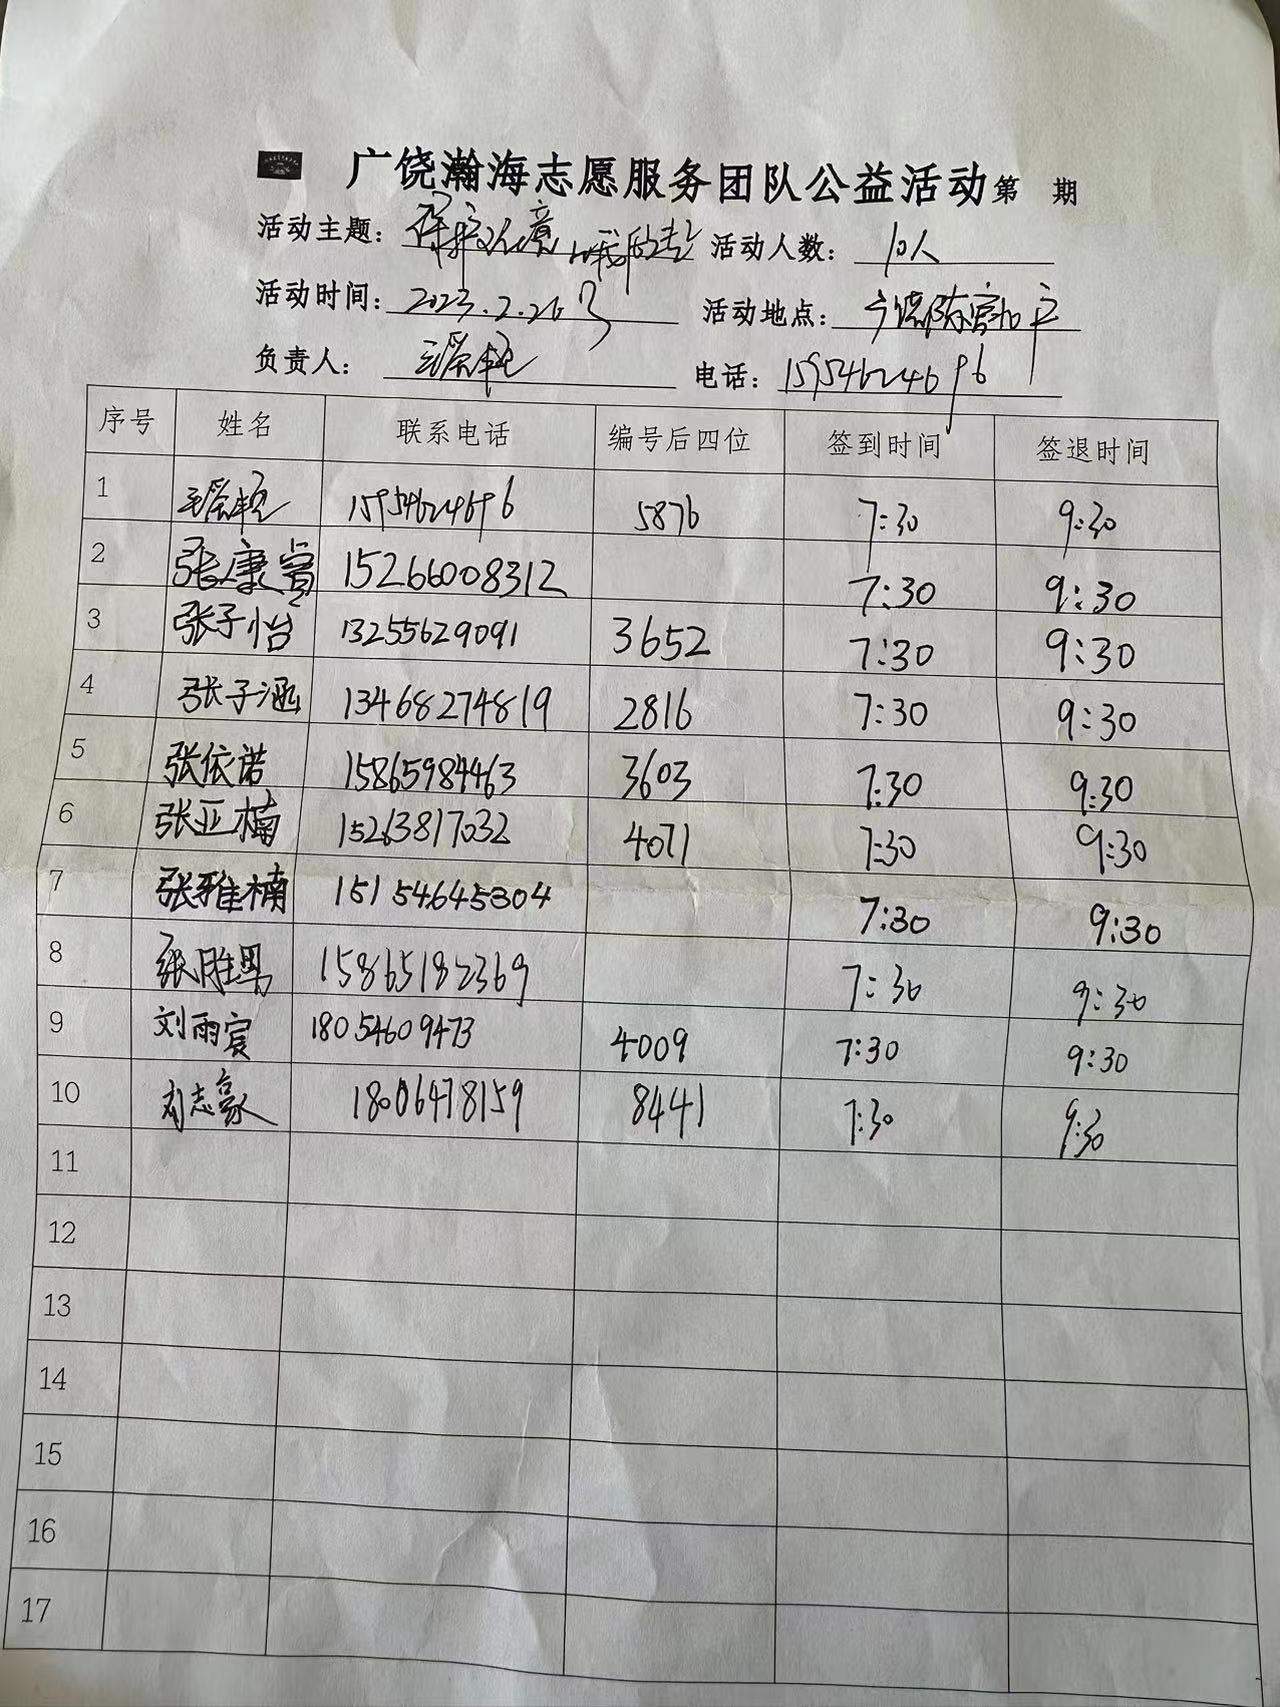 广饶瀚海志愿服务团队公益活动第 期
活动主题: 保护环境 活动人数: 10人
活动时间: 2023.2.26 活动地点: 广饶
负责人: 电话: 15954624696
序号 姓名 联系电话 编号后四位 签到时间 签退时间
1 15954624696 5876 7:30 9:30
2 张康睿 15266008312 7:30 9:30
3 张子怡 13255629091 3652 7:30 9:30
4 张子涵 13468274819 2816 7:30 9:30
5 张依诺 15865984463 3603 7:30 9:30
6 张亚楠 15263817032 4071 7:30 9:30
7 张雅楠 15154645304 7:30 9:30
8 张胜男 15865182369 7:30 9:30
9 刘雨宸 18054609473 4009 7:30 9:30
10 刘志豪 18006478159 8441 7:30 9:30
11
12
13
14
15
16
17